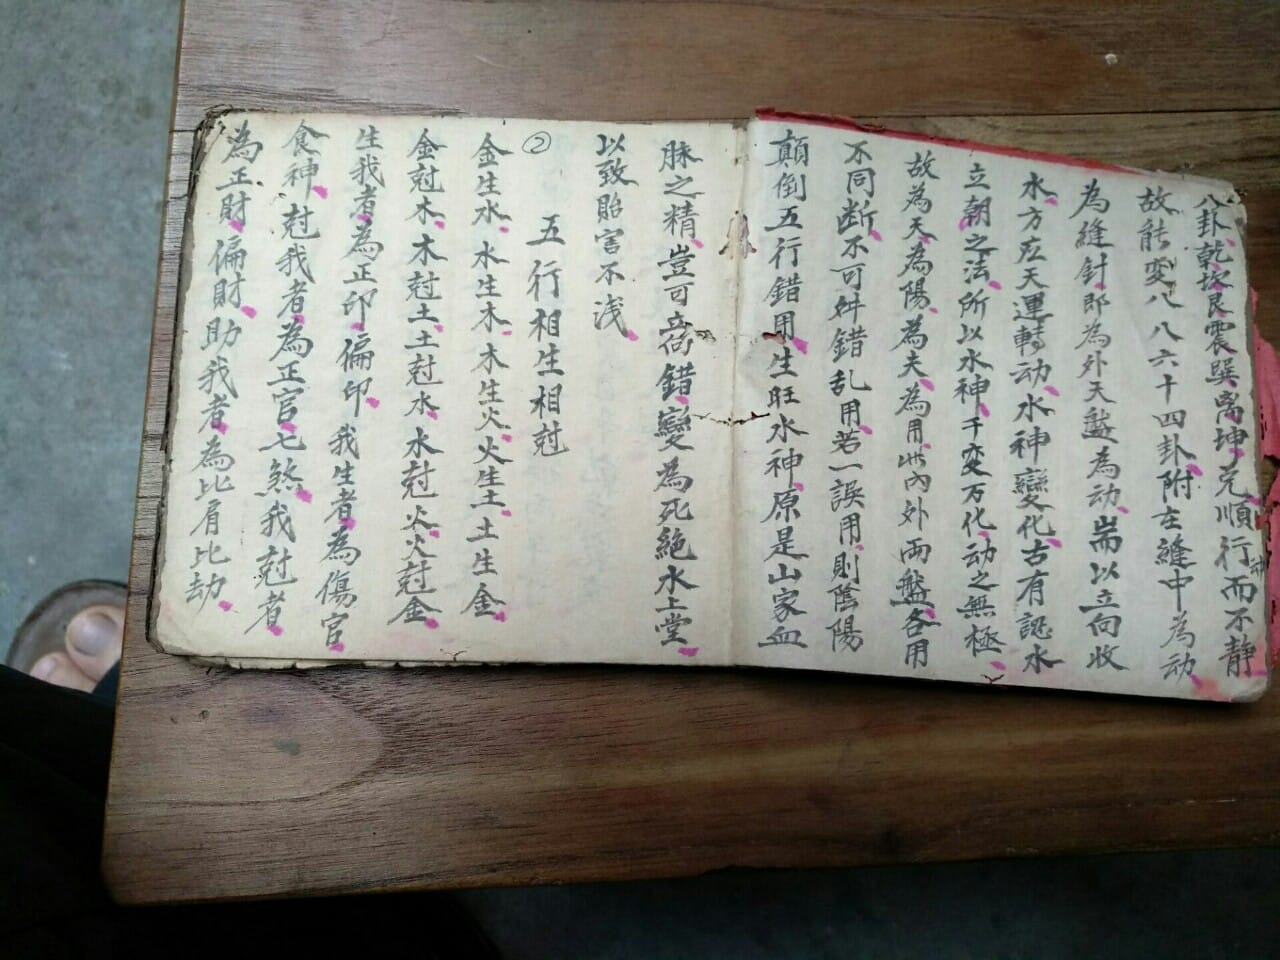 八卦乾坎艮震巽离坤兑順行而不静
动
故能变八八六十四卦附在縫中為动
為縫針即為外天盤為动耑而以立向收
水方左天運轉动水神變化古有認水
立朝之法所以水神千变万化动之無極
故為天為陽為夫為用此内外兩盤各用
不同断不可舛錯乱用若一誤用則陰陽
顛倒五行錯用生旺水神原是山家血
脉之精豈可喬錯變為死絶水上堂
以致貽害不浅
②
五行相生相尅
金生水水生木木生火火生土土生金
金尅木木尅土土尅水水尅火火尅金
生我者為正印偏印我生者為傷官
食神尅我者為正官七煞我尅者
為正財偏財助我者為比肩比劫